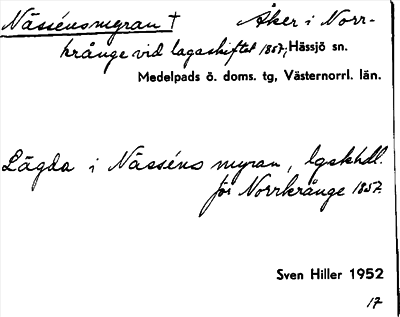 Nässénsmyran † Åker i Norr-
krånge vid lagaskiftet 1857, Hässjö sn.
Medelpads ö. doms. tg, Västernorrl. län.
Lägda i Nässéns myran, lgskhdl.
för Norrkrånge 1857.
Sven Hiller 1952
17